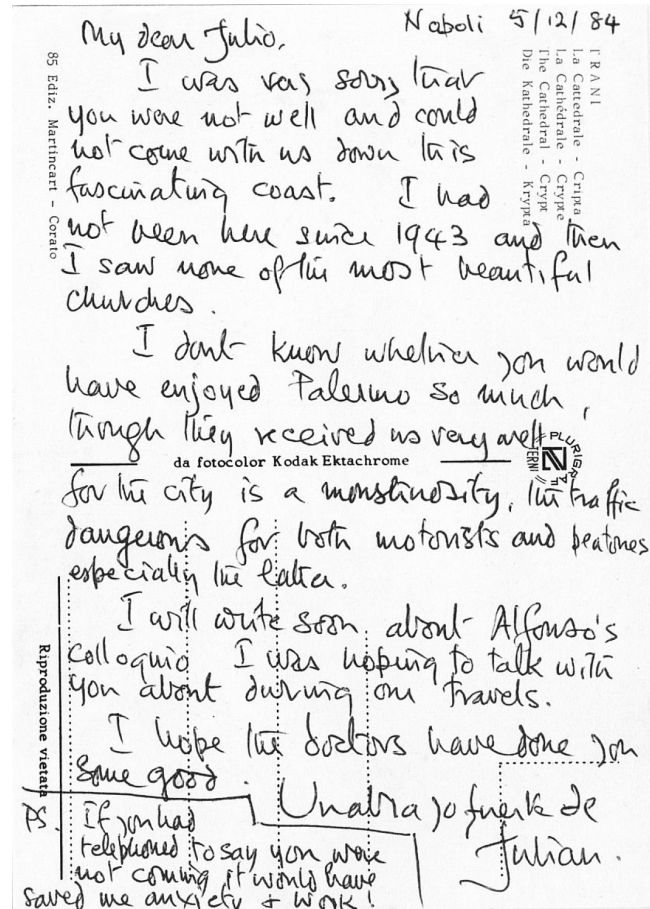 Naboli 5/12/84
My dear Julio,
I was very sorry that
you were not well and could
not come with us down this
fascinating coast. I had
not been here since 1943 and then
I saw none of the most beautiful
churches.
I dont know whether you would
have enjoyed Palermo so much,
though they received us very well
for the city is a monstruosity, the traffic
dangerous for both motorists and peatones
especially the latter.
I will write soon about Alfonso's
colloquio I was hoping to talk with
you about during our travels.
I hope the doctors have done you
some good.
Un abrazo fuerte de
Julian.
PS. If you had
telephoned to say you were
not coming it would have
saved me anxiety & work!
TRANI
La Cattedrale - Cripta
La Cathédrale - Crypte
The Cathedral - Crypt
Die Kathedrale - Krypta
85 Ediz. Martincart - Corato
da fotocolor Kodak Ektachrome
PLURIGRAF
TERNI
Riproduzione vietata